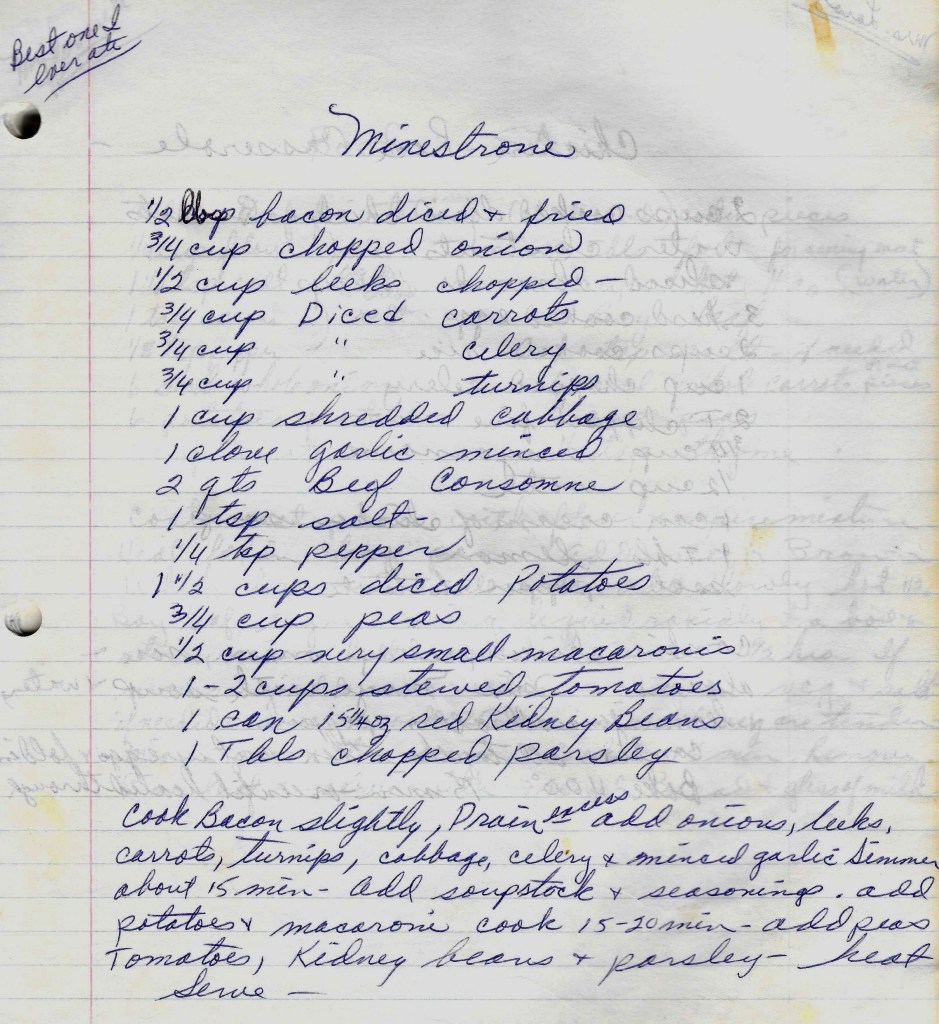 Best one I
ever ate
Minestrone
1/2 bacon diced + fried
3/4 cup chopped onion
1/2 cup leeks chopped —
3/4 cup Diced carrots
3/4 cup " celery
3/4 cup " turnips
1 cup shredded cabbage
1 clove garlic minced
2 qts Beef Consomne
1 tsp salt -
1/4 tsp pepper
1 1/2 cups diced Potatoes
3/4 cup peas
1/2 cup very small macaronis
1 - 2 cups stewed tomatoes
1 can 15 1/4 oz red Kidney Beans
1 Tbls chopped parsley
Cook Bacon slightly, Drain excess add onions, leeks,
carrots, turnips, cabbage, celery & minced garlic Simmer
about 15 min - add soupstock & seasonings. add
potatoes & macaroni cook 15-20 min - add peas
Tomatoes, Kidney beans + parsley - heat
Serve —